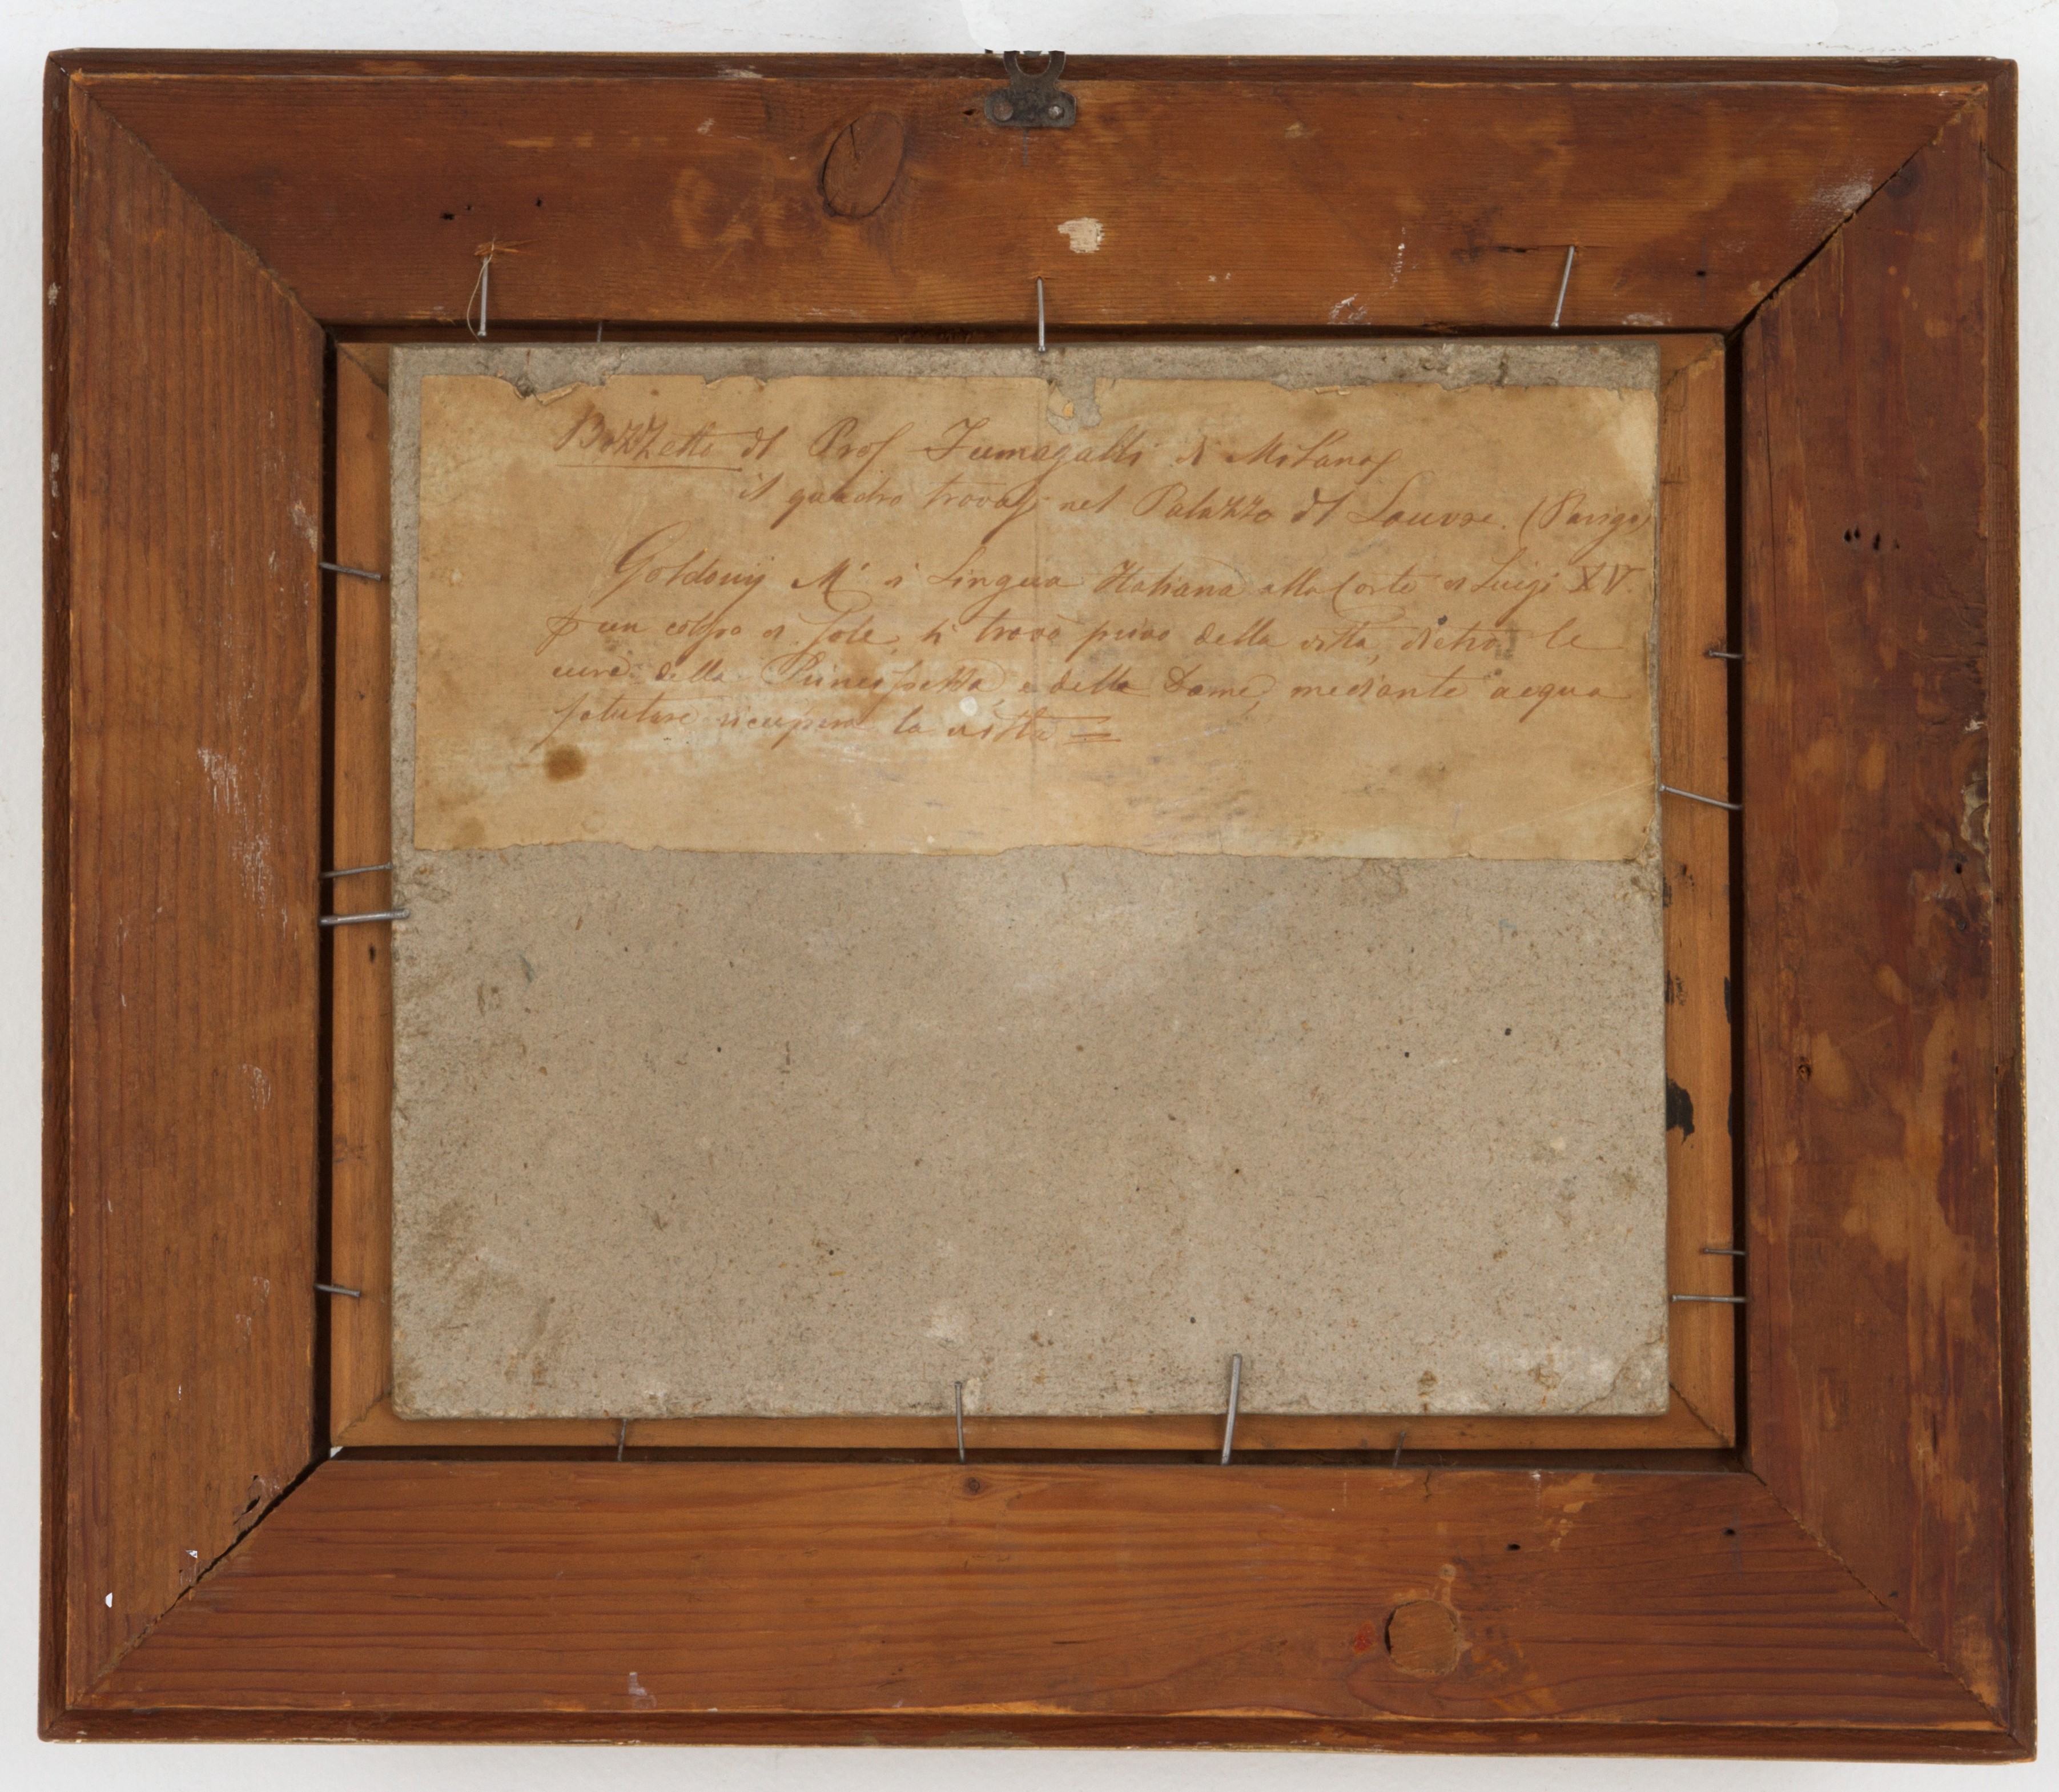 Bozzetto dl Prof Fumagalli di Milano
il quadro trovasi nel Palazzo dl Louvre. (Parigi)
Goldony Mº di Lingua Italiana alla Corte di Luigi XV.
p un colpo di Sole, si trovò privo della vista, dietro le
cure della Principessa e delle Dame, mediante acqua
salutare ricuperò la vista =